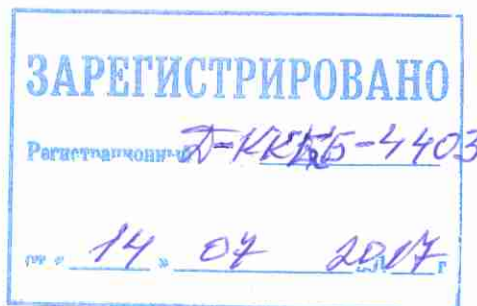 ЗАРЕГИСТРИРОВАНО
Регистрационный Д-ККББ-4403
от « 14 » 07 2017 г